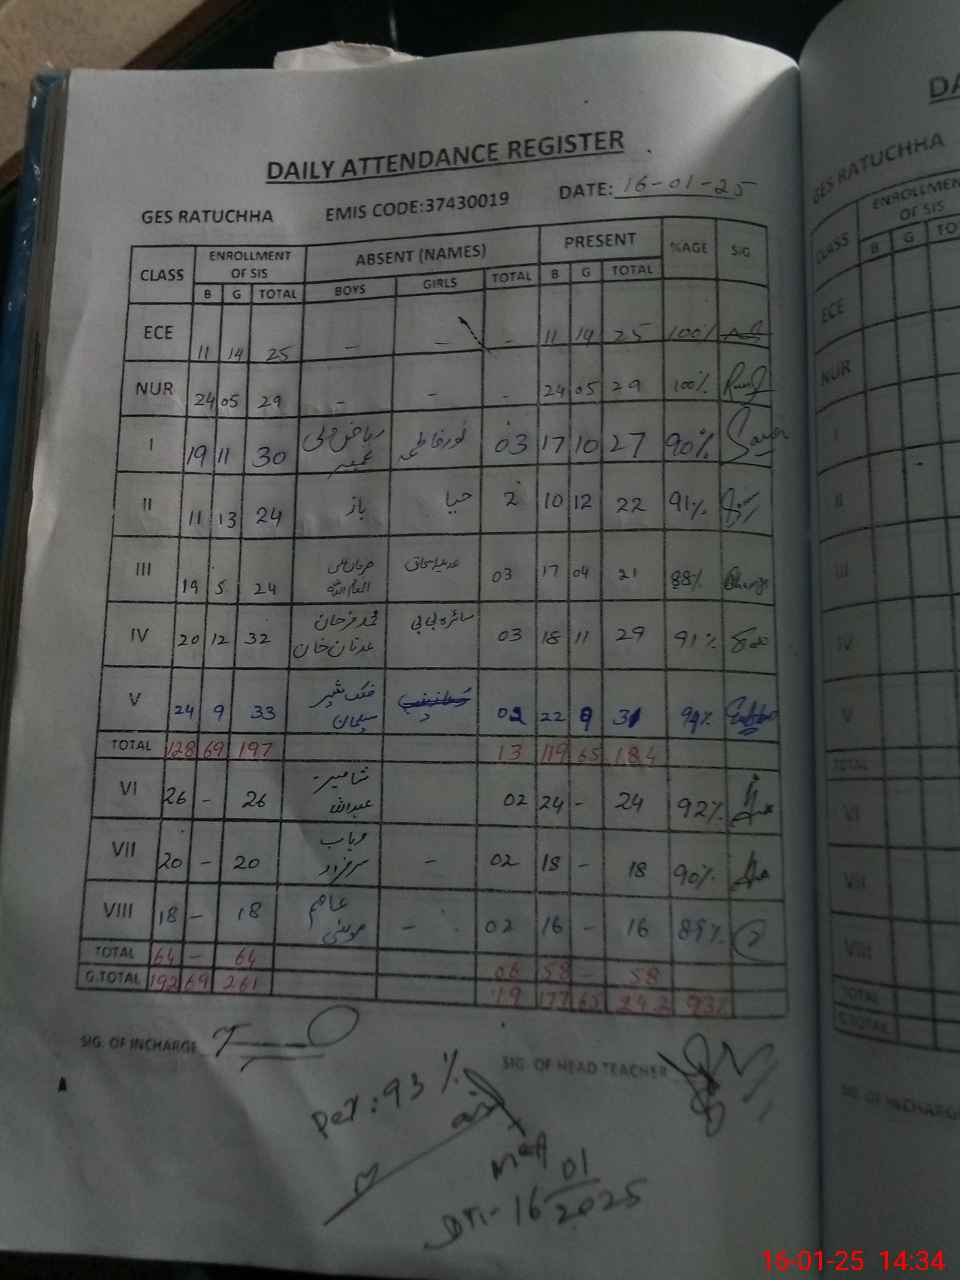 DAILY ATTENDANCE REGISTER
GES RATUCHHA EMIS CODE:37430019 DATE: 16-01-25
CLASS ENROLLMENT OF SIS ABSENT (NAMES) PRESENT %AGE SIG.
B G TOTAL BOYS GIRLS TOTAL B G TOTAL
ECE 11 14 25 - - - 11 14 25 100%
NUR 24 05 29 - - - 24 05 29 100%
I 19 11 30 03 17 10 27 90%
II 11 13 24 باز حیا 2 10 12 22 91%
III 19 5 24 03 17 04 21 88%
IV 20 12 32 محمد فرحان عدنان خان سائرہ بی بی 03 18 11 29 91%
V 24 9 33 سلیمان 02 22 9 31 94%
TOTAL 128 69 197 13 119 65 184
VI 26 - 26 عبداللہ 02 24 - 24 92%
VII 20 - 20 - 02 18 - 18 90%
VIII 18 - 18 - 02 16 - 16 89%
TOTAL 64 - 64 06 58 - 58
G.TOTAL 192 69 261 19 177 65 242 93%
SIG. OF INCHARGE SIG. OF HEAD TEACHER
Per: 93%
MEA
Dt:- 16 01 2025
DA
GES RATUCHHA
CLASS ENROLLMENT OF SIS
B G TO
ECE
NUR
I
II
III
IV
V
TOTAL
VI
VII
VIII
TOTAL
G.TOTAL
SIG. OF INCHARG
16-01-25 14:34